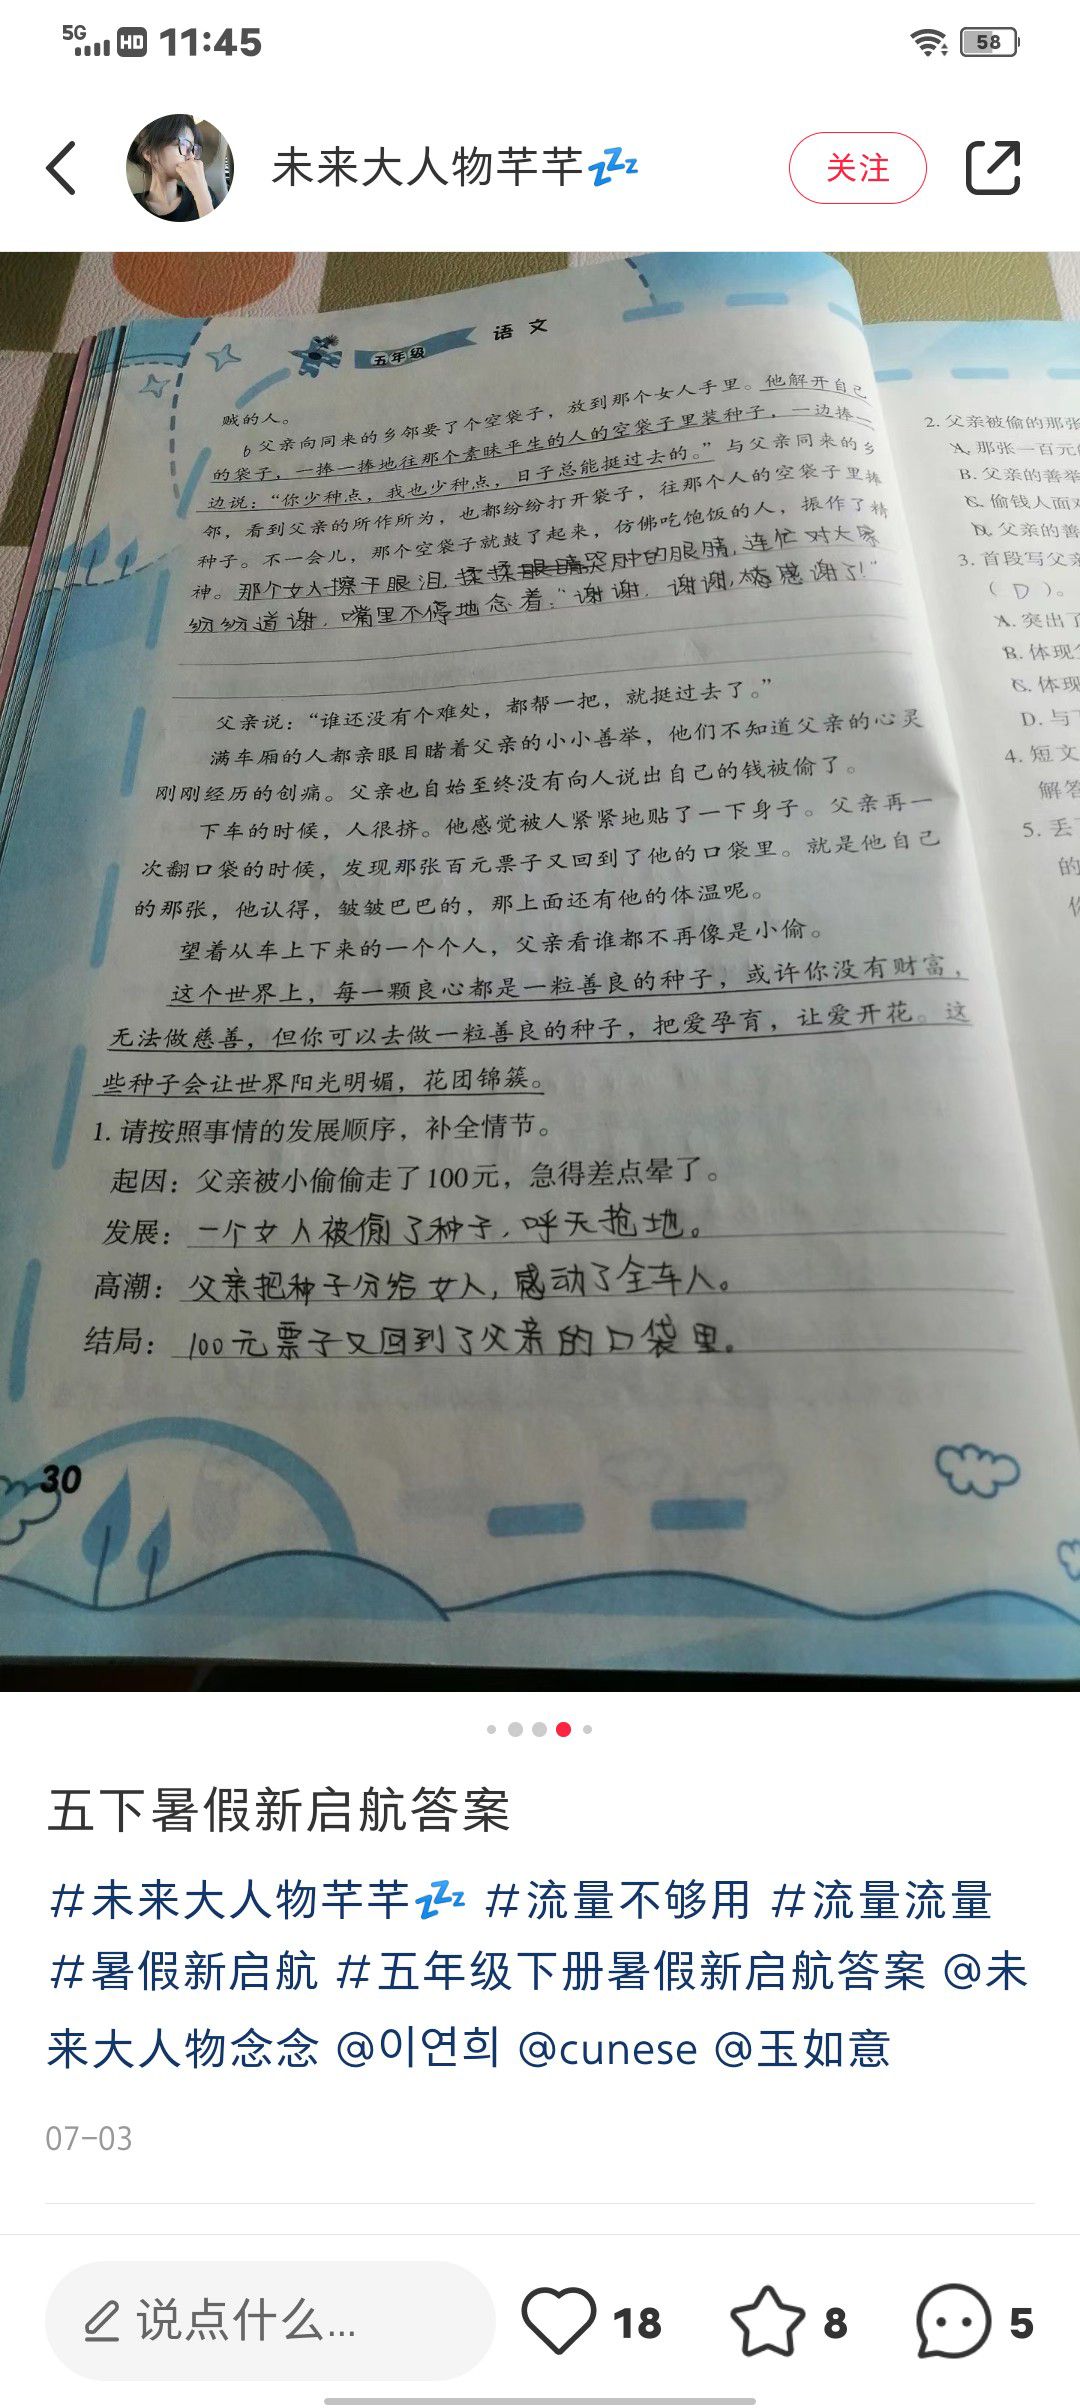 5G HD 11:45 58
未来大人物芊芊💤 关注
五年级 语文
贼的人。
6 父亲向同来的乡邻要了个空袋子，放到那个女人手里。他解开自己
的袋子，一捧一捧地往那个素昧平生的人的空袋子里装种子，一边捧一
边说：“你少种点，我也少种点，日子总能挺过去的。”与父亲同来的乡
邻，看到父亲的所作所为，也都纷纷打开袋子，往那个人的空袋子里捧
种子。不一会儿，那个空袋子就鼓了起来，仿佛吃饱饭的人，振作了精
神。那个女人擦干眼泪，揉揉哭肿的眼睛，连忙对大家
纷纷道谢，嘴里不停地念着：“谢谢，谢谢，太感谢了！”
父亲说：“谁还没有个难处，都帮一把，就挺过去了。”
满车厢的人都亲眼目睹着父亲的小小善举，他们不知道父亲的心灵
刚刚经历的创痛。父亲也自始至终没有向人说出自己的钱被偷了。
下车的时候，人很挤。他感觉被人紧紧地贴了一下身子。父亲再一
次翻口袋的时候，发现那张百元票子又回到了他的口袋里。就是他自己
的那张，他认得，皱皱巴巴的，那上面还有他的体温呢。
望着从车上下来的一个个人，父亲看谁都不再像是小偷。
这个世界上，每一颗良心都是一粒善良的种子，或许你没有财富，
无法做慈善，但你可以去做一粒善良的种子，把爱孕育，让爱开花。这
些种子会让世界阳光明媚，花团锦簇。
1. 请按照事情的发展顺序，补全情节。
起因：父亲被小偷偷走了100元，急得差点晕了。
发展：一个女人被偷了种子，呼天抢地。
高潮：父亲把种子分给女人，感动了全车人。
结局：100元票子又回到了父亲的口袋里。
30
2. 父亲被偷的那张
A. 那张一百元
B. 父亲的善举
C. 偷钱人面对
D. 父亲的善
3. 首段写父亲
（ D ）。
A. 突出了
B. 体现
C. 体现
D. 与
4. 短文
解答
5. 丢
的
五下暑假新启航答案
#未来大人物芊芊💤 #流量不够用 #流量流量
#暑假新启航 #五年级下册暑假新启航答案 @未
来大人物念念 @이연희 @cunese @玉如意
07-03
说点什么... 18 8 5